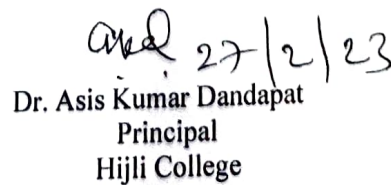 27/2/23
Dr. Asis Kumar Dandapat
Principal
Hijli College